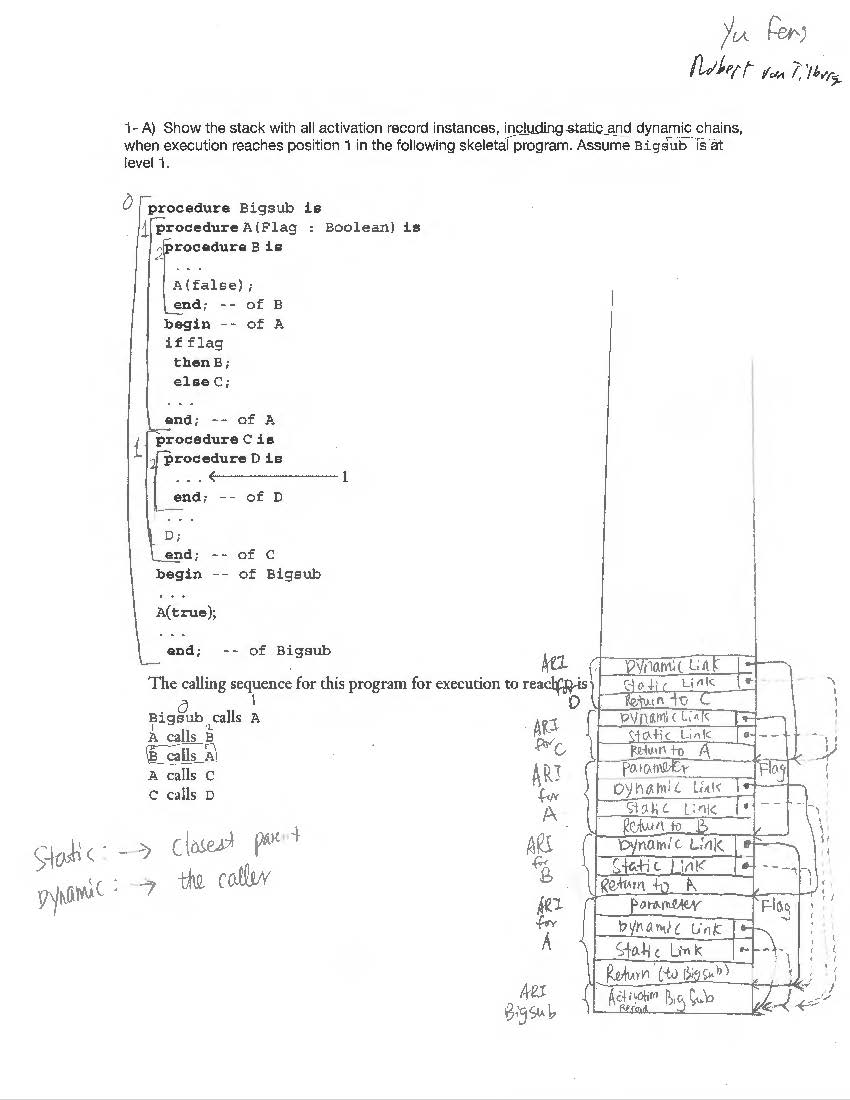 Yu Feng
Robert von Tilburg
1- A) Show the stack with all activation record instances, including static and dynamic chains,
when execution reaches position 1 in the following skeletal program. Assume Bigsub is at
level 1.
0 procedure Bigsub is
1 procedure A(Flag : Boolean) is
2 procedure B is
...
A(false);
end; -- of B
begin -- of A
if flag
then B;
else C;
...
end; -- of A
1 procedure C is
2 procedure D is
... 1
end; -- of D
...
D;
end; -- of C
begin -- of Bigsub
...
A(true);
...
end; -- of Bigsub
The calling sequence for this program for execution to reach D is
0 1
Bigsub calls A
1 2
A calls B
B calls A
A calls C
C calls D
Static: → closest parent
Dynamic: → the caller
ARI
for
D
Dynamic Link
Static Link
Return to C
ARI
for C
Dynamic Link
Static Link
Return to A
ARI
for
A
Parameter Flag
Dynamic Link
Static Link
Return to B
ARI
for
B
Dynamic Link
Static Link
Return to A
ARI
for
A
Parameter Flag
Dynamic Link
Static Link
Return (to Bigsub)
ARI
BigSub
Activation Big Sub
Record